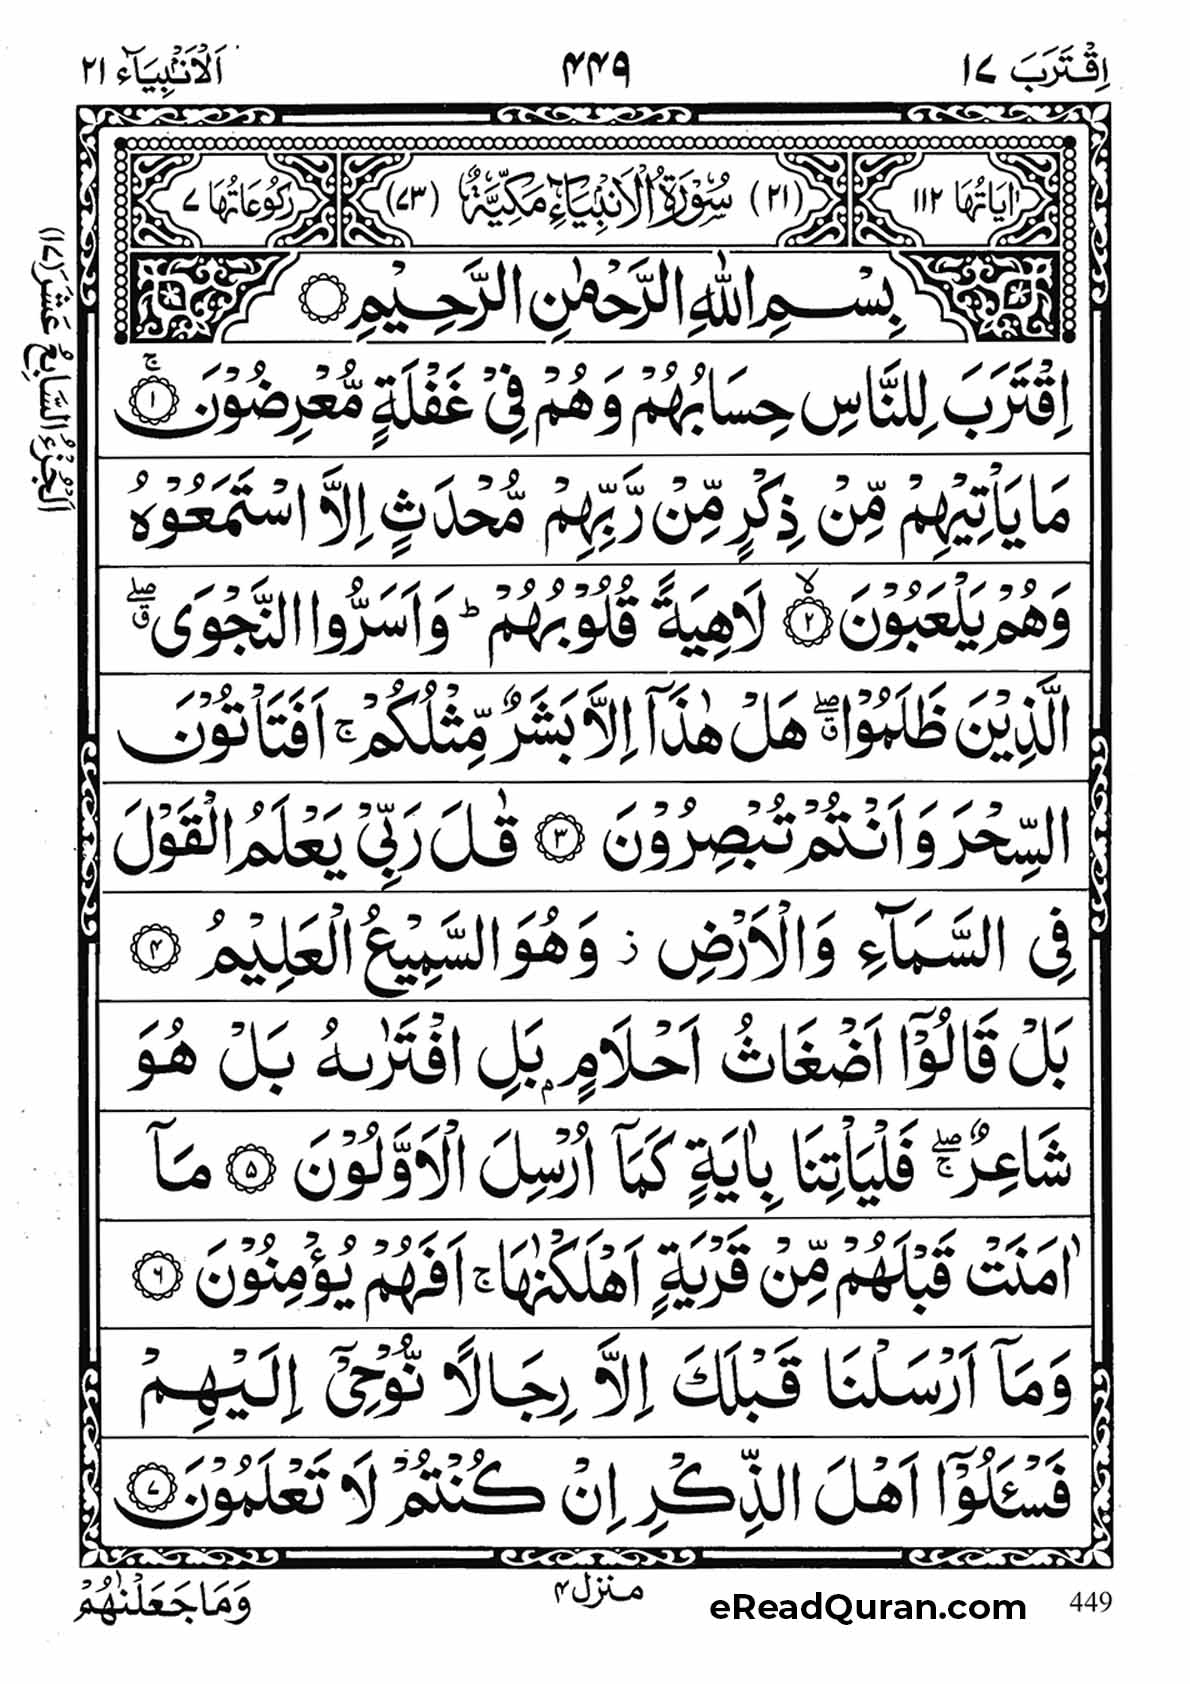 اِقْتَرَبَ ١٧
۴۴۹
اَلْاَنْۢبِيَآء ٢١
اٰيَاتُهَا ١١٢
(٢١) سُوْرَةُ الْاَنْۢبِيَآءِ مَكِّيَّةٌ (٧٣)
رُكُوْعَاتُهَا ٧
بِسْمِ اللّٰهِ الرَّحْمٰنِ الرَّحِيْمِ
اِقْتَرَبَ لِلنَّاسِ حِسَابُهُمْ وَهُمْ فِيْ غَفْلَةٍ مُّعْرِضُوْنَ ۚ ١
مَا يَاْتِيْهِمْ مِّنْ ذِكْرٍ مِّنْ رَّبِّهِمْ مُّحْدَثٍ اِلَّا اسْتَمَعُوْهُ
وَهُمْ يَلْعَبُوْنَ ۙ ٢ لَاهِيَةً قُلُوْبُهُمْ ؕ وَاَسَرُّوا النَّجْوَى ۖق
الَّذِيْنَ ظَلَمُوْا ۖق هَلْ هٰذَآ اِلَّا بَشَرٌ مِّثْلُكُمْ ۚ اَفَتَاْتُوْنَ
السِّحْرَ وَاَنْتُمْ تُبْصِرُوْنَ ٣ قٰلَ رَبِّيْ يَعْلَمُ الْقَوْلَ
فِي السَّمَآءِ وَالْاَرْضِ ز وَهُوَ السَّمِيْعُ الْعَلِيْمُ ۴
بَلْ قَالُوْٓا اَضْغَاثُ اَحْلَامٍۭ بَلِ افْتَرٰىهُ بَلْ هُوَ
شَاعِرٌ ۖۚ فَلْيَاْتِنَا بِاٰيَةٍ كَمَآ اُرْسِلَ الْاَوَّلُوْنَ ۵ مَآ
اٰمَنَتْ قَبْلَهُمْ مِّنْ قَرْيَةٍ اَهْلَكْنٰهَا ۚ اَفَهُمْ يُؤْمِنُوْنَ ٦
وَمَآ اَرْسَلْنَا قَبْلَكَ اِلَّا رِجَالًا نُّوْحِيْٓ اِلَيْهِمْ
فَسْـَٔلُوْٓا اَهْلَ الذِّكْرِ اِنْ كُنْتُمْ لَا تَعْلَمُوْنَ ٧
اَلْجُزْءُ السَّابِعُ عَشَرَ (١٧)
وَمَا جَعَلْنٰهُمْ
منزل ۴
eReadQuran.com
449